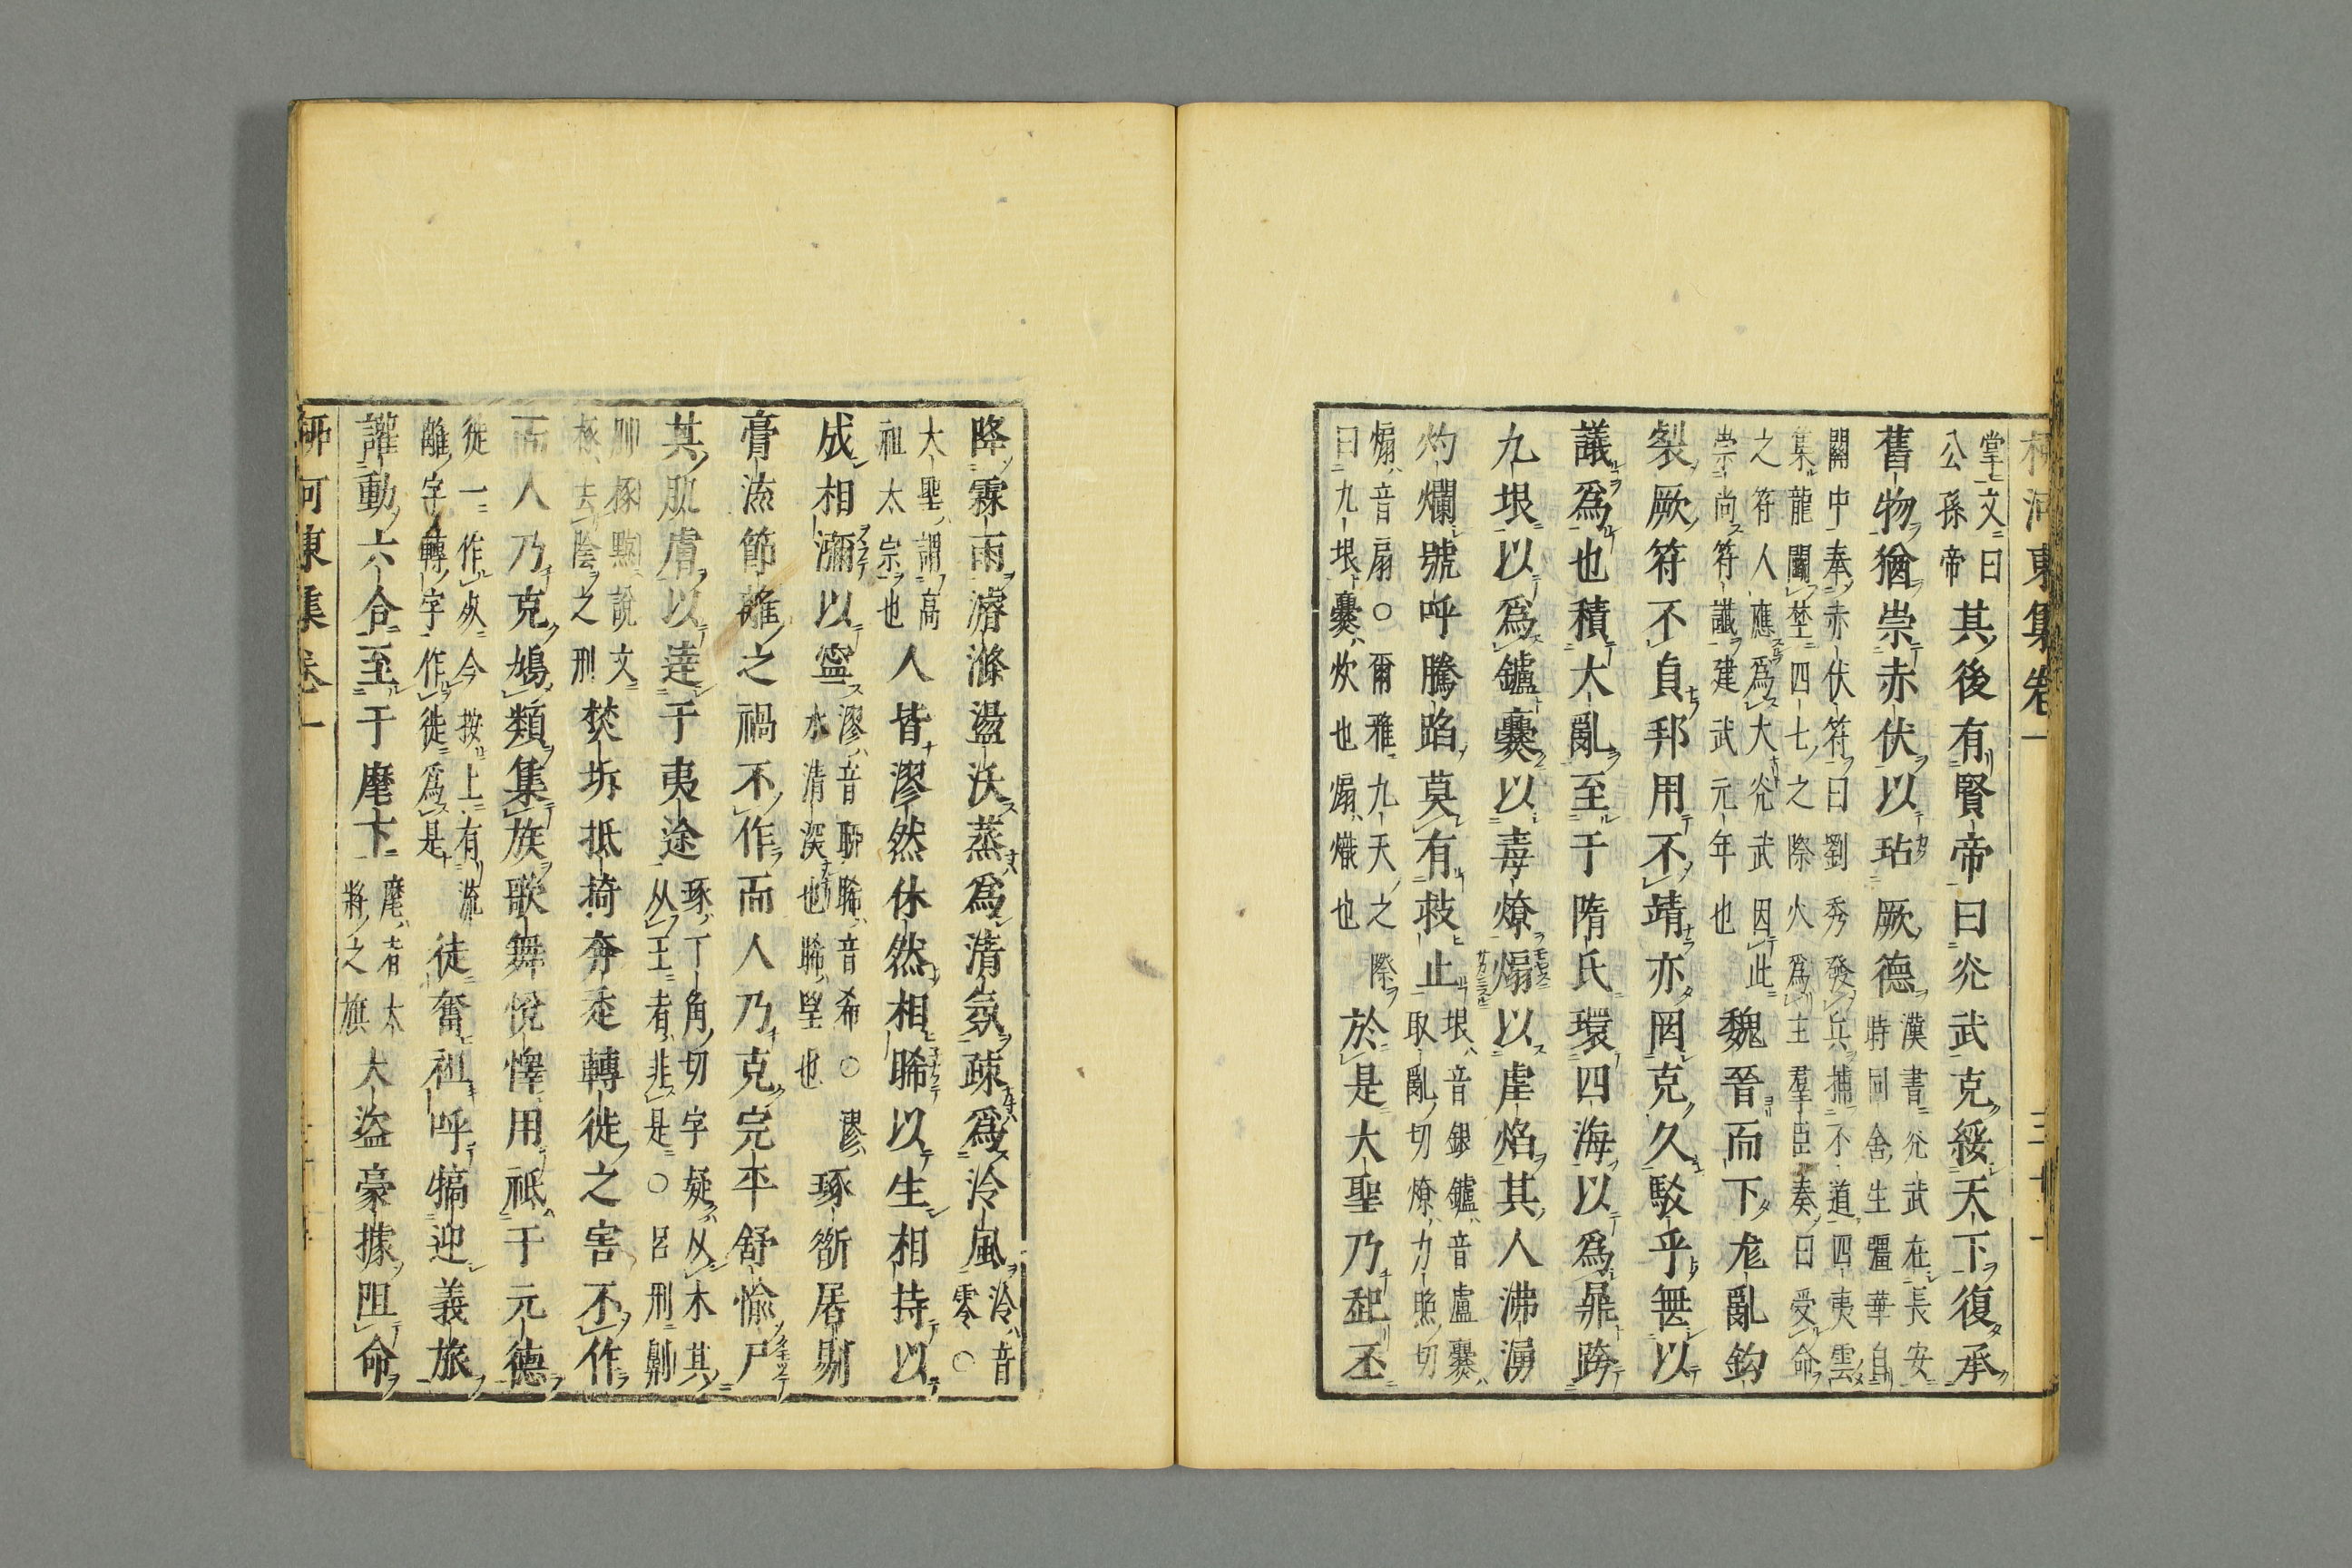 柳河東集卷一
掌文曰
公孫帝
其後有賢帝曰光武克綏天下復承
舊物猶崇赤伏以玷厥德
漢書光武在長安
時同舍生彊華自
關中奉赤伏符曰劉秀發兵捕不道四夷雲
集龍鬭埜四七之際火爲主羣臣奏曰受命
之符人應爲大光武因此
崇尚符讖建武元年也
魏晉而下尨亂鈎
裂厥符不貞邦用不靖亦罔克久駁乎無以
議爲也積大亂至于隋氏環四海以爲鼎跨
九垠以爲鑪爨以毒燎煽以虐焰其人沸湧
灼爛號呼騰蹈莫有救止
垠音銀鑪音盧爨
取亂切燎力照切
煽音扇○爾雅九天之際
曰九垠爨炊也煽熾也
於是大聖乃起丕
降霖雨濬滌盪沃蒸爲清氛疎爲泠風
泠音
零○
大聖謂高
祖太宗也
人皆漻然休然相睎以生相持以
成相瀰以寧
漻音聊睎音希○漻
水清深也睎望也
琢斮屠剔
膏流節離之禍不作而人乃克完平舒愉尸
其肌膚以達于夷途
琢丁角切字疑从木其
从王者非是○呂刑劓
刵椓黥說文
椓去陰之刑
焚坼抵掎奔走轉徙之害不作
而人乃克鳩類集族歌舞悅懌用祗于元德
徙一作从今按上有流
離字轉字作徙爲是
徒奮袒呼犒迎義旅
讙動六合至于麾下
麾者大
將之旗
大盜豪據阻命
柳河東集卷一